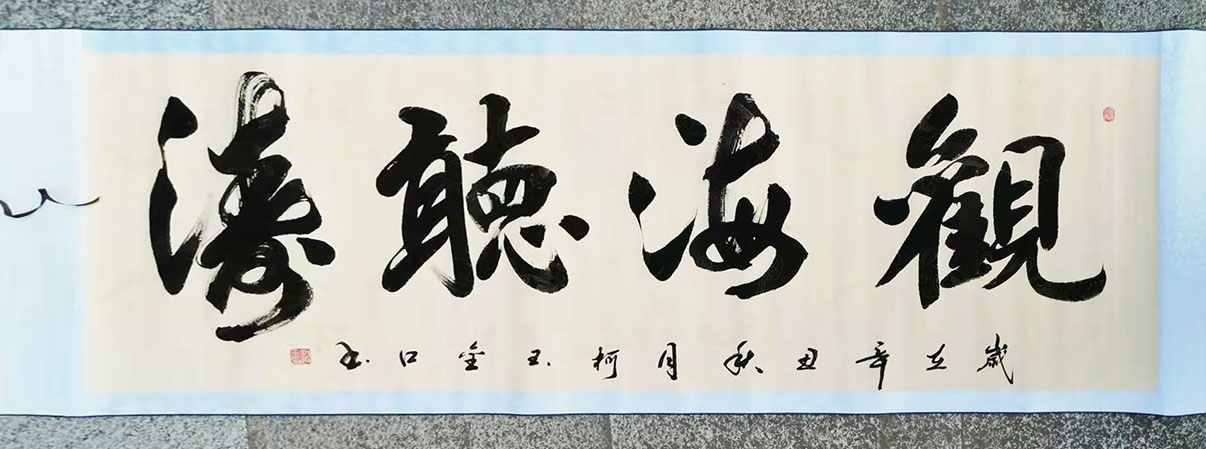 觀海聽濤
歲在辛丑秋月柯金口书